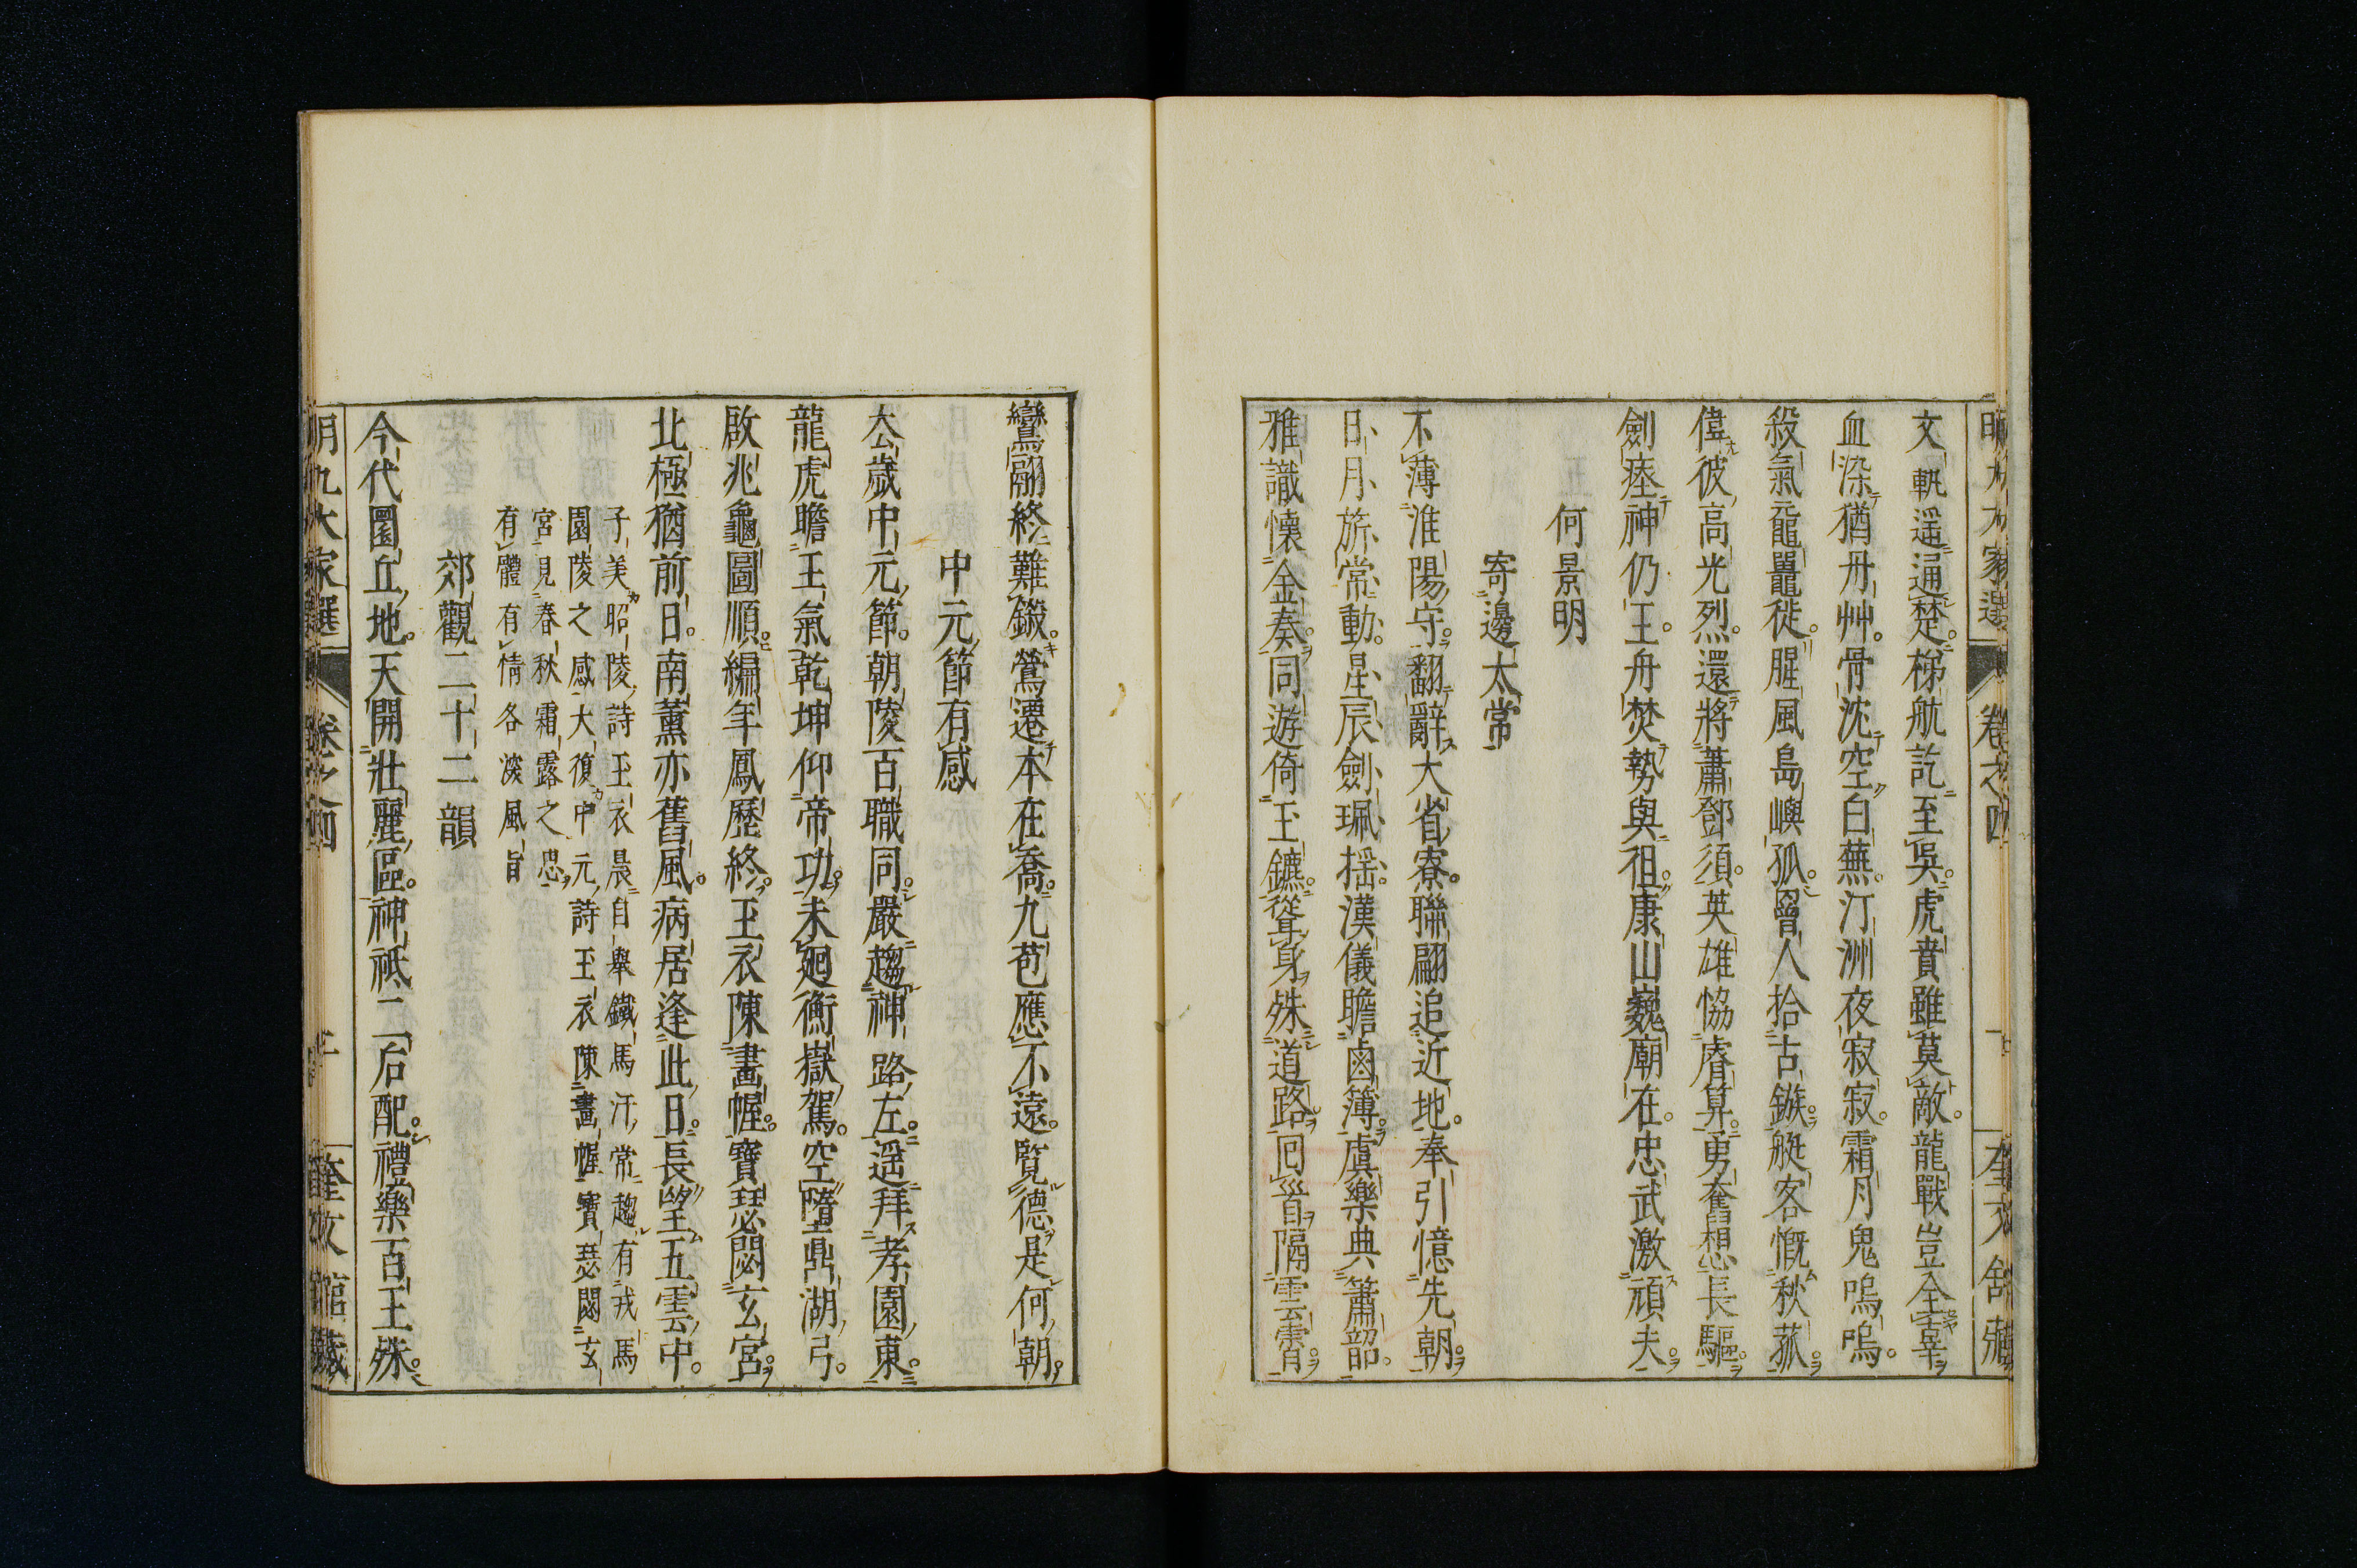 文軌遥通楚梯航訖至吳虎賁雖莫敵龍戰豈全辜
血染猶丹艸骨沈空白蕪汀洲夜寂寂霜月鬼嗚嗚
殺氣黿鼉徙腥風島嶼孤罾人拾古鏃艇客慨秋菰
偉彼高光烈還將蕭鄧須英雄恊睿算勇奮想長驅
劍瘞神仍王舟焚勢與徂康山巍廟在忠武激頑夫
何景明
寄邊太常
不薄淮陽守翻辭大省寮聯翩追近地奉引憶先朝
日月旂常動星辰劍珮揺漢儀瞻鹵簿虞樂典簫韶
雅識懷金奏同遊倚玉鑣聳身殊道路囘首隔雲霄
鸞翮終難鎩鶯遷本在喬九苞應不遠覽德是何朝
中元節有感
太歲中元節朝陵百職同嚴趨神路左遥拜孝園東
龍虎瞻王氣乾坤仰帝功未廻衡嶽駕空墮鼎湖弓
啟兆龜圖順編年鳳歷終玉衣陳畫幄寶瑟閟玄宮
北極猶前日南薰亦舊風病居逢此日長望五雲中
子美昭陵詩玉衣晨自舉鐵馬汗常趨有戎馬
園陵之感大復中元詩玉衣陳畫幄寶瑟閟玄
宮見春秋霜露之思
有體有情各漢風旨
郊觀二十二韻
今代圜丘地天開壯麗區神祗二后配禮樂百王殊
明九大家選 卷之四 奎文館藏